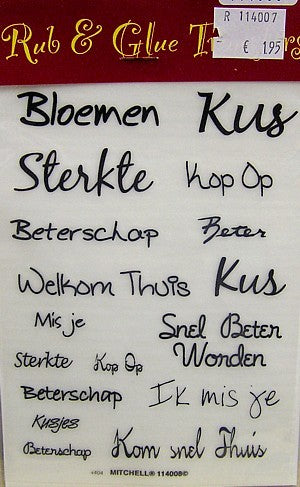 R 114007
€ 1.95
Rub & Glue
Bloemen Kus
Sterkte Kop Op
Beterschap Beter
Welkom Thuis Kus
Mis je Snel Beter
Wonden
Sterkte Kop Op
Beterschap Ik mis je
Kusjes
Beterschap Kom snel Thuis
MITCHELL® 114008©